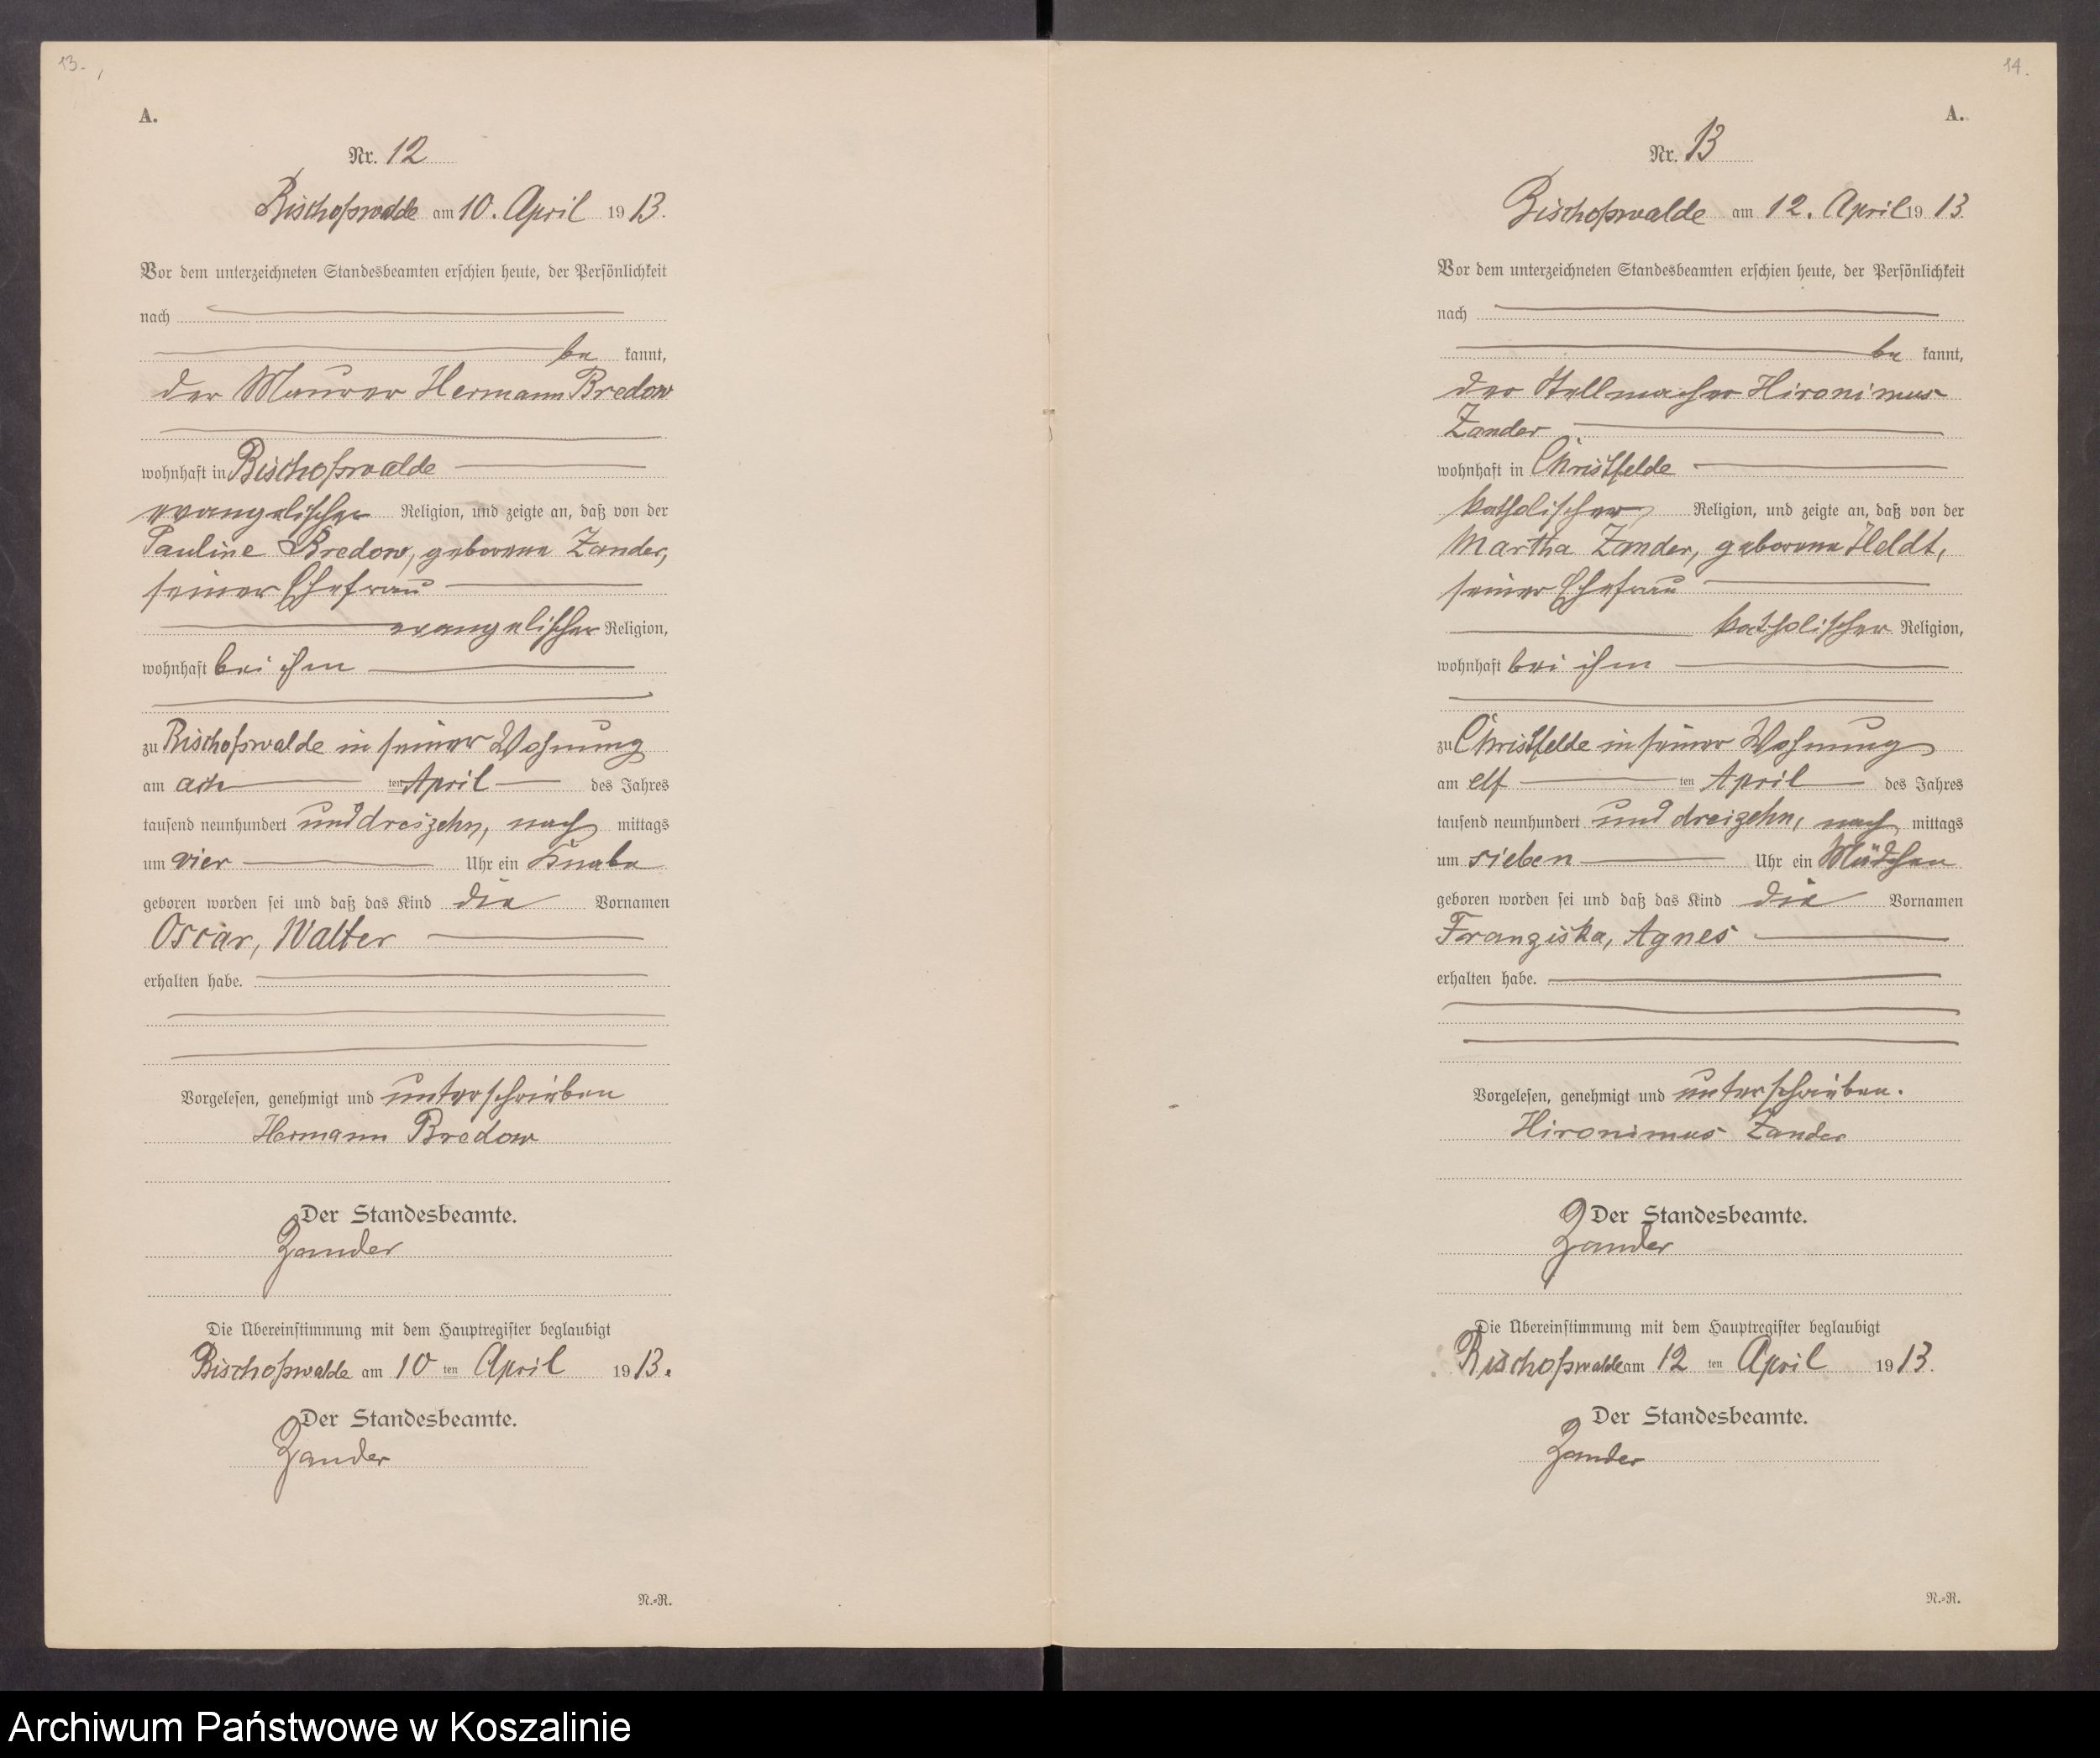 13.
A.
Nr. 12
Bischofswalde am 10. April 1913.
Vor dem unterzeichneten Standesbeamten erschien heute, der Persönlichkeit
nach
be kannt,
der Maurer Hermann Bredow
wohnhaft in Bischofswalde
evangelischer Religion, und zeigte an, daß von der
Pauline Bredow, geborene Zander,
seiner Ehefrau
evangelischer Religion,
wohnhaft bei ihm
zu Bischofswalde in seiner Wohnung
am ach ten April des Jahres
tausend neunhundert und dreizehn, nach mittags
um vier Uhr ein Knabe
geboren worden sei und daß das Kind die Vornamen
Oscar, Walter
erhalten habe.
Vorgelesen, genehmigt und unterschrieben
Hermann Bredow
Der Standesbeamte.
Zander
Die Übereinstimmung mit dem Hauptregister beglaubigt
Bischofswalde am 10 ten April 1913.
Der Standesbeamte.
Zander
N.-R.
14.
A.
Nr. 13
Bischofswalde am 12. April 1913.
Vor dem unterzeichneten Standesbeamten erschien heute, der Persönlichkeit
nach
be kannt,
der Stellmacher Hironimus
Zander
wohnhaft in Christfelde
katholischer Religion, und zeigte an, daß von der
Martha Zander, geborene Heldt,
seiner Ehefrau
katholischer Religion,
wohnhaft bei ihm
zu Christfelde in seiner Wohnung
am elf ten April des Jahres
tausend neunhundert und dreizehn, nach mittags
um sieben Uhr ein Mädchen
geboren worden sei und daß das Kind die Vornamen
Franziska, Agnes
erhalten habe.
Vorgelesen, genehmigt und unterschrieben.
Hironimus Zander
Der Standesbeamte.
Zander
Die Übereinstimmung mit dem Hauptregister beglaubigt
Bischofswalde am 12 ten April 1913.
Der Standesbeamte.
Zander
N.-R.
Archiwum Państwowe w Koszalinie